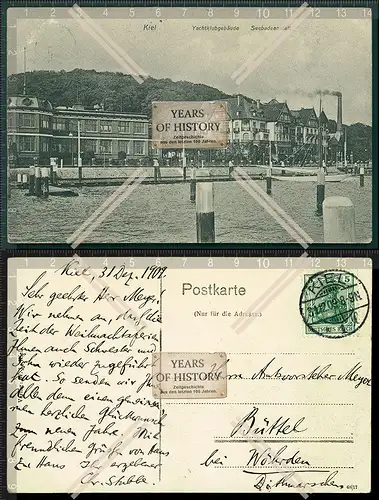 Kiel
Yachtklubgebäude Seebadeanstalt
YEARS
OF HISTORY
Zeitgeschichte
aus den letzten 100 Jahren
Kiel 31 Dez. 1909.
Sehr geehrter Herr Meyer!
Wir nehmen an, daß die
Zeit der Weihnachtsferien
Ihnen auch Schwester und
Sohn wieder zugeführt
hat. So senden wir Ihnen
allen dem einen gemeinsa-
men herzlichen Glückwunsch
zum neuen Jahre. Mit
freundlichen Grüßen von Haus
zu Haus Ihr ergebener
Postkarte
(Nur für die Adresse)
KIEL
31.12.09
YEARS
OF HISTORY
Zeitgeschichte
aus den letzten 100 Jahren
Herrn Amtsvorsteher Meyer
Büttel
bei Wöhrden
Dithmarschen